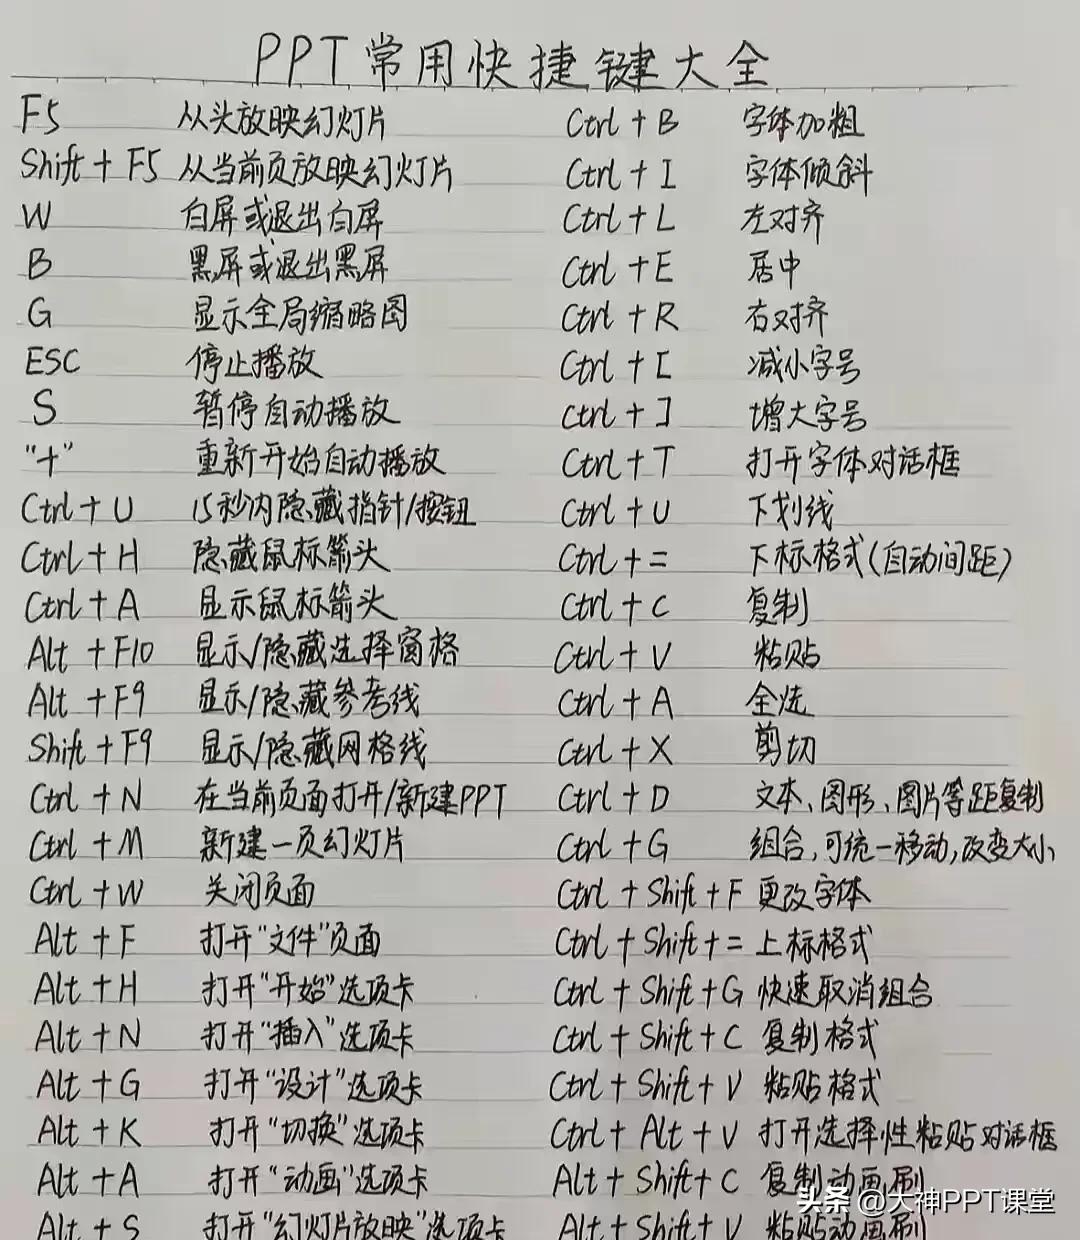 PPT常用快捷键大全
F5 从头放映幻灯片 Ctrl + B 字体加粗
Shift + F5 从当前页放映幻灯片 Ctrl + I 字体倾斜
W 白屏或退出白屏 Ctrl + L 左对齐
B 黑屏或退出黑屏 Ctrl + E 居中
G 显示全局缩略图 Ctrl + R 右对齐
ESC 停止播放 Ctrl + [ 减小字号
S 暂停自动播放 Ctrl + ] 增大字号
"+" 重新开始自动播放 Ctrl + T 打开字体对话框
Ctrl + U 15秒内隐藏指针/按钮 Ctrl + U 下划线
Ctrl + H 隐藏鼠标箭头 Ctrl + = 下标格式(自动间距)
Ctrl + A 显示鼠标箭头 Ctrl + C 复制
Alt + F10 显示/隐藏选择窗格 Ctrl + V 粘贴
Alt + F9 显示/隐藏参考线 Ctrl + A 全选
Shift + F9 显示/隐藏网格线 Ctrl + X 剪切
Ctrl + N 在当前页面打开/新建PPT Ctrl + D 文本、图形、图片等距复制
Ctrl + M 新建一页幻灯片 Ctrl + G 组合,可统一移动,改变大小
Ctrl + W 关闭页面 Ctrl + Shift + F 更改字体
Alt + F 打开"文件"页面 Ctrl + Shift + = 上标格式
Alt + H 打开"开始"选项卡 Ctrl + Shift + G 快速取消组合
Alt + N 打开"插入"选项卡 Ctrl + Shift + C 复制格式
Alt + G 打开"设计"选项卡 Ctrl + Shift + V 粘贴格式
Alt + K 打开"切换"选项卡 Ctrl + Alt + V 打开选择性粘贴对话框
Alt + A 打开"动画"选项卡 Alt + Shift + C 复制动画刷
头条 @大神PPT课堂
Alt + S 打开"幻灯片放映"选项卡 Alt + Shift + V 粘贴动画刷